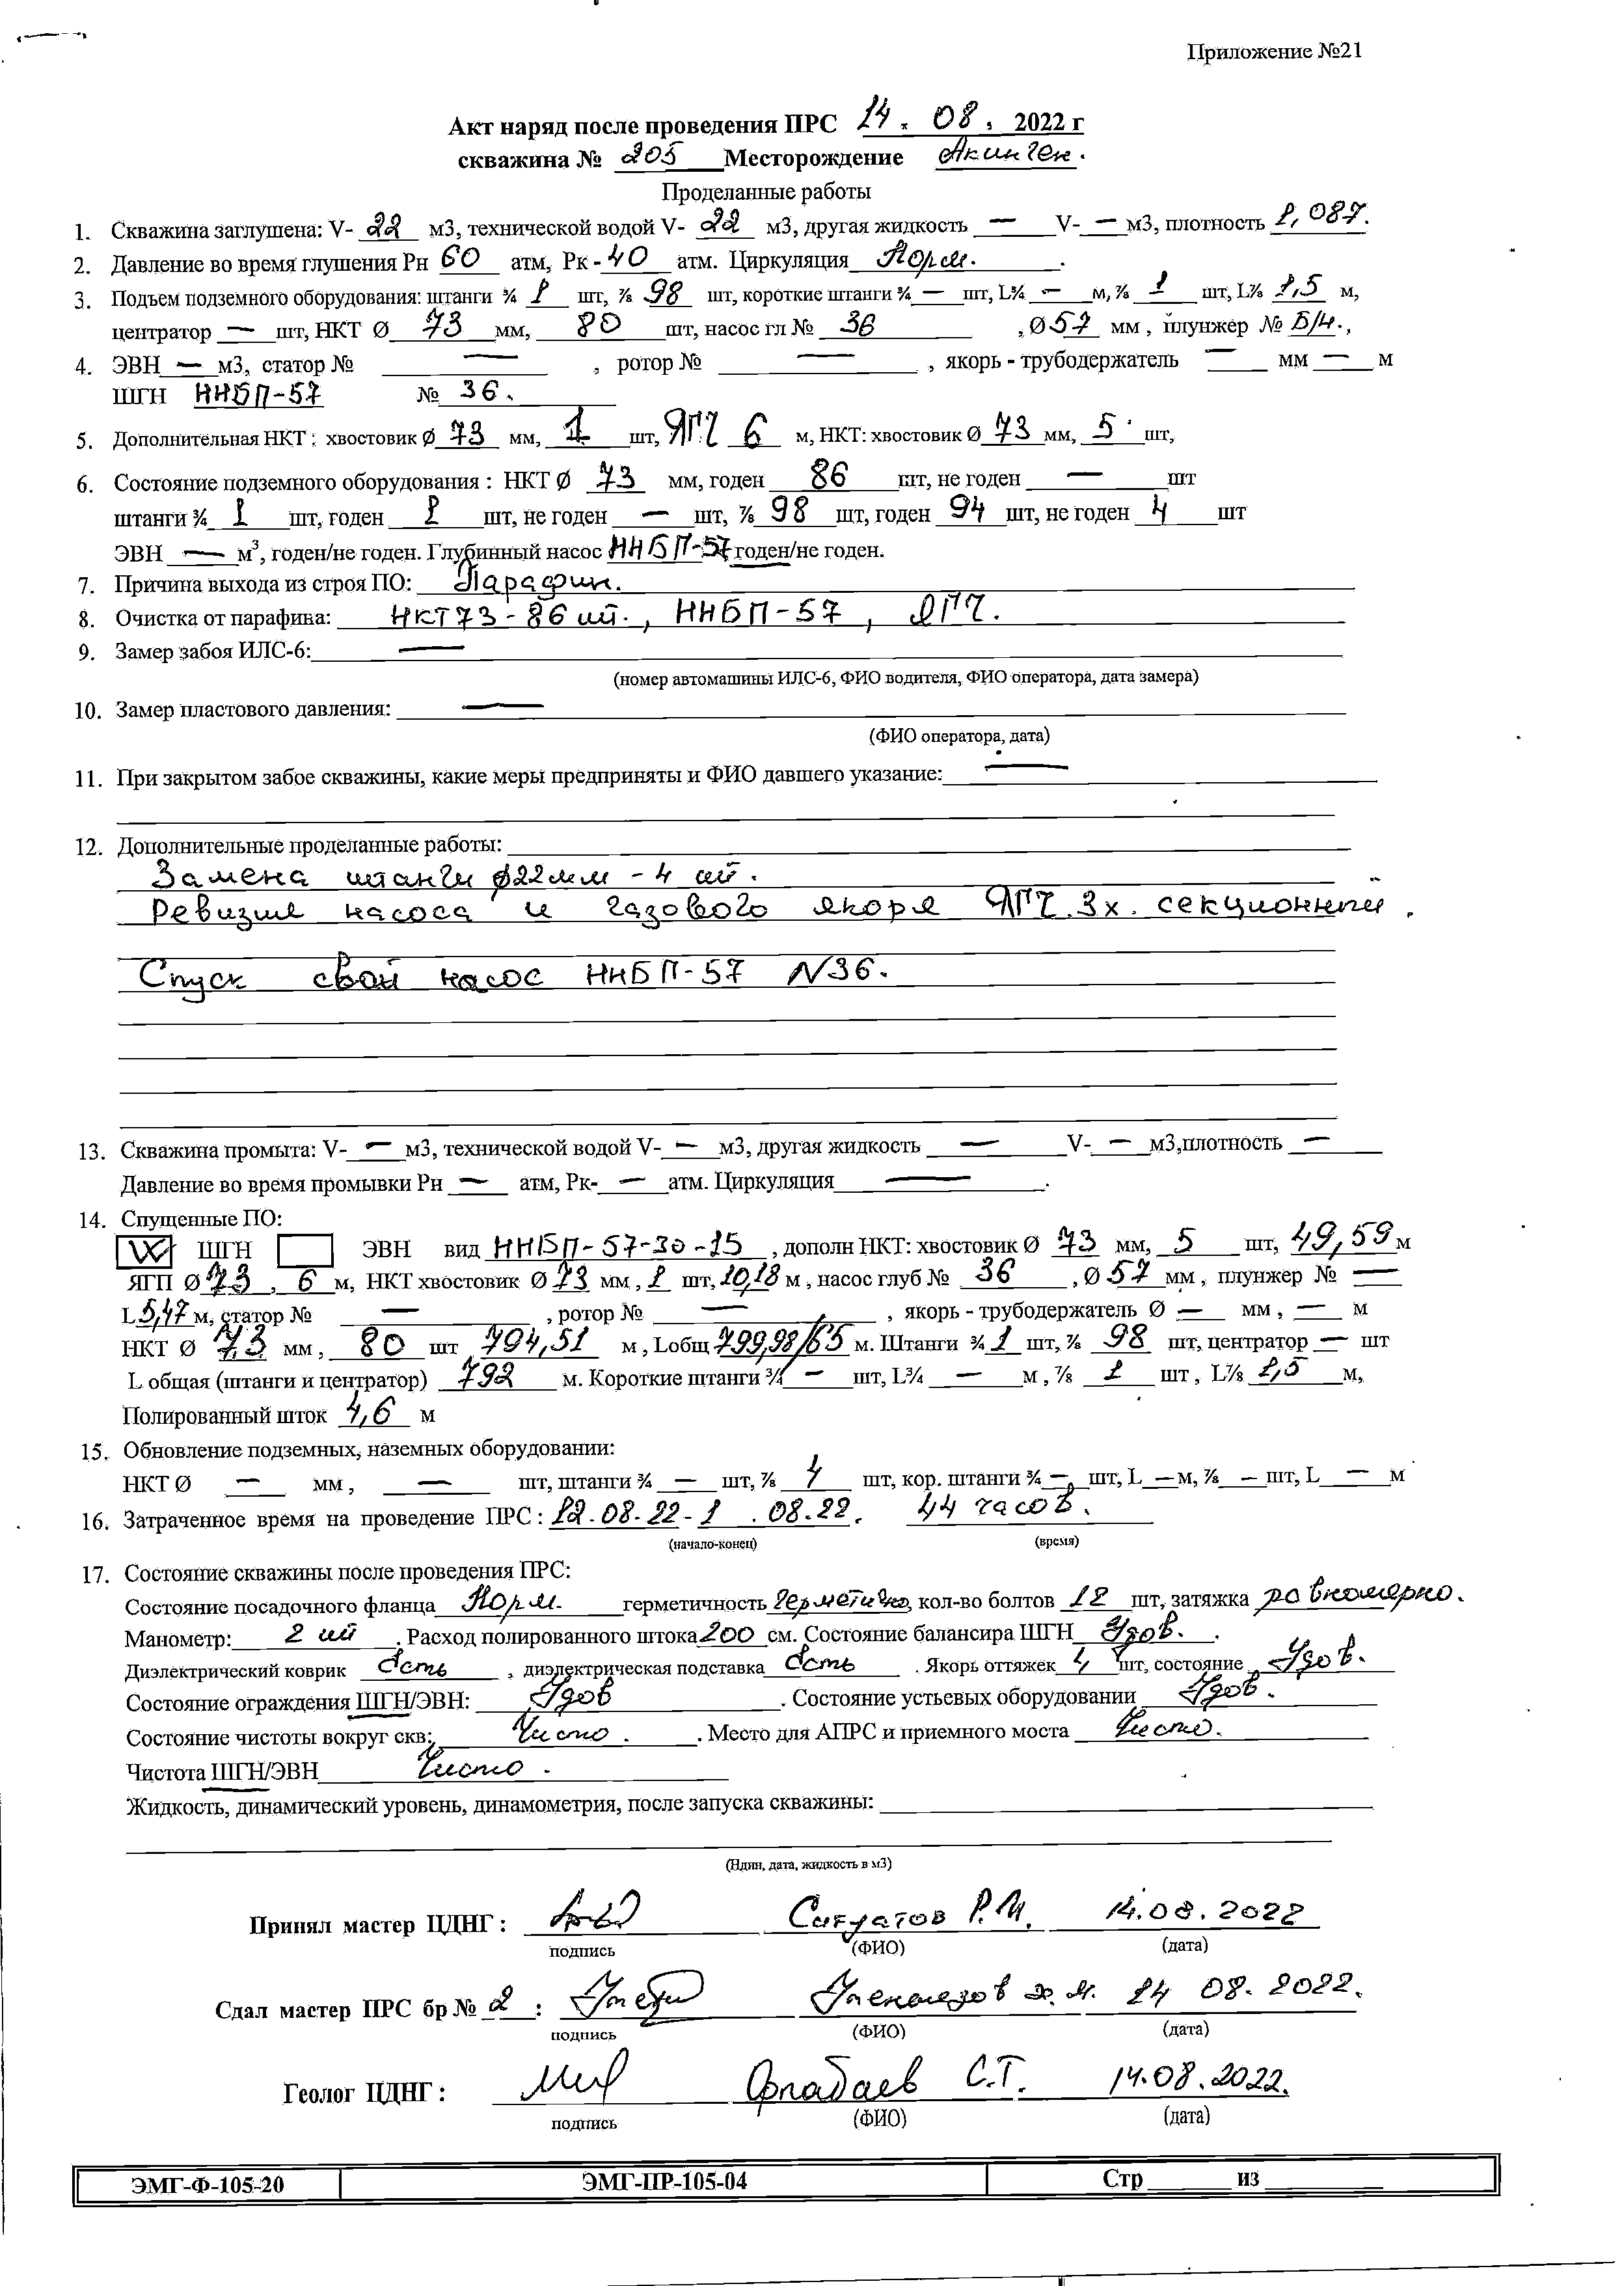 Приложение №21
Акт наряд после проведения ПРС 14. 08. 2022 г
скважина № 205 Месторождение Акинген.
Проделанные работы
1. Скважина заглушена: V- 22 м3, технической водой V- 22 м3, другая жидкость — V- — м3, плотность 1,087.
2. Давление во время глушения Рн 60 атм, Рк - 40 атм. Циркуляция Норм.
3. Подъем подземного оборудования: штанги ¾ 1 шт, ⅞ 98 шт, короткие штанги ¾ — шт, L¾ — м, ⅞ 1 шт, L⅞ 1,5 м,
центратор — шт, НКТ Ø 73 мм, 80 шт, насос гл № 36 , Ø 57 мм , плунжер № Б/н.,
4. ЭВН — м3, статор № — , ротор № — , якорь - трубодержатель — мм — м
ШГН ННБП-57 № 36.
5. Дополнительная НКТ : хвостовик Ø 73 мм, 1 шт, ЯГП 6 м, НКТ: хвостовик Ø 73 мм, 5 шт,
6. Состояние подземного оборудования : НКТ Ø 73 мм, годен 86 шт, не годен — шт
штанги ¾ 1 шт, годен 1 шт, не годен — шт, ⅞ 98 шт, годен 94 шт, не годен 4 шт
ЭВН — м³, годен/не годен. Глубинный насос ННБП-57 годен/не годен.
7. Причина выхода из строя ПО: Парафин.
8. Очистка от парафина: НКТ73-86 шт., ННБП-57, ЯГП.
9. Замер забоя ИЛС-6: —
(номер автомашины ИЛС-6, ФИО водителя, ФИО оператора, дата замера)
10. Замер пластового давления: —
(ФИО оператора, дата)
11. При закрытом забое скважины, какие меры предприняты и ФИО давшего указание: —
12. Дополнительные проделанные работы:
Замена штанги ф22мм - 4 шт.
Ревизия насоса и газового якоря ЯГП 3х. секционный.
Спуск свой насос ННБП-57 N36.
13. Скважина промыта: V- — м3, технической водой V- — м3, другая жидкость — V- — м3,плотность —
Давление во время промывки Рн — атм, Рк- — атм. Циркуляция — .
14. Спущенные ПО:
ШГН ЭВН вид ННБП-57-30-15 , дополн НКТ: хвостовик Ø 73 мм, 5 шт, 49,59 м
ЯГП Ø 73 , 6 м, НКТ хвостовик Ø 73 мм , 1 шт, 10,18 м , насос глуб № 36 , Ø 57 мм , плунжер № —
L 5,47 м, статор № — , ротор № — , якорь - трубодержатель Ø — мм , — м
НКТ Ø 73 мм , 80 шт 794,51 м , Lобщ 799,98/65 м. Штанги ¾ 1 шт, ⅞ 98 шт, центратор — шт
L общая (штанги и центратор) 792 м. Короткие штанги ¾ — шт, L¾ — м , ⅞ 1 шт , L⅞ 1,5 м,
Полированный шток 4,6 м
15. Обновление подземных, наземных оборудовании:
НКТ Ø — мм , — шт, штанги ¾ — шт, ⅞ 4 шт, кор. штанги ¾ — шт, L — м, ⅞ — шт, L — м
16. Затраченное время на проведение ПРС : 12.08.22-1 .08.22. 44 часов.
(начало-конец) (время)
17. Состояние скважины после проведения ПРС:
Состояние посадочного фланца Норм. герметичность Герметично, кол-во болтов 12 шт, затяжка равномерно.
Манометр: 2 шт . Расход полированного штока 200 см. Состояние балансира ШГН Удов. .
Диэлектрический коврик Есть , диэлектрическая подставка Есть . Якорь оттяжек 4 шт, состояние Удов.
Состояние ограждения ШГН/ЭВН: Удов . Состояние устьевых оборудовании Удов.
Состояние чистоты вокруг скв: Чисто . . Место для АПРС и приемного моста Чисто.
Чистота ШГН/ЭВН Чисто .
Жидкость, динамический уровень, динамометрия, после запуска скважины:
(Ндин, дата, жидкость в м3)
Принял мастер ЦДНГ : Р.М. 14.08.2022
подпись (ФИО) (дата)
Сдал мастер ПРС бр № 2 : 14 08.2022.
подпись (ФИО) (дата)
Геолог ЦДНГ : С.Т. 14.08.2022.
подпись (ФИО) (дата)
ЭМГ-Ф-105-20 ЭМГ-ПР-105-04 Стр ______ из ______